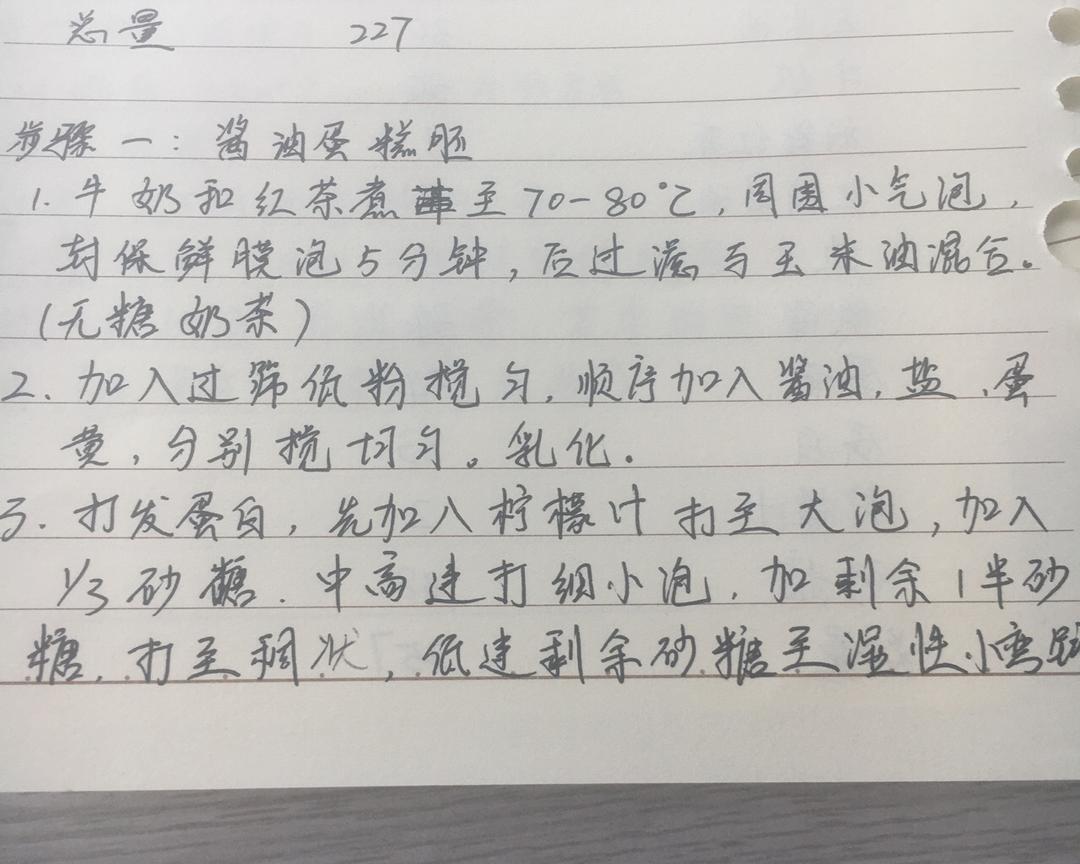 总量 227
步骤一：酱油蛋糕胚
1. 牛奶和红茶煮至70-80℃，周围小气泡，
封保鲜膜泡5分钟，后过滤与玉米油混合。
（无糖奶茶）
2. 加入过筛低粉搅匀，顺序加入酱油，盐、蛋
黄，分别搅切匀。乳化。
3. 打发蛋白，先加入柠檬汁打至大泡，加入
1/3砂糖．中高速打细小泡，加剩余1半砂
糖，打至稠状，低速剩余砂糖至湿性小弯